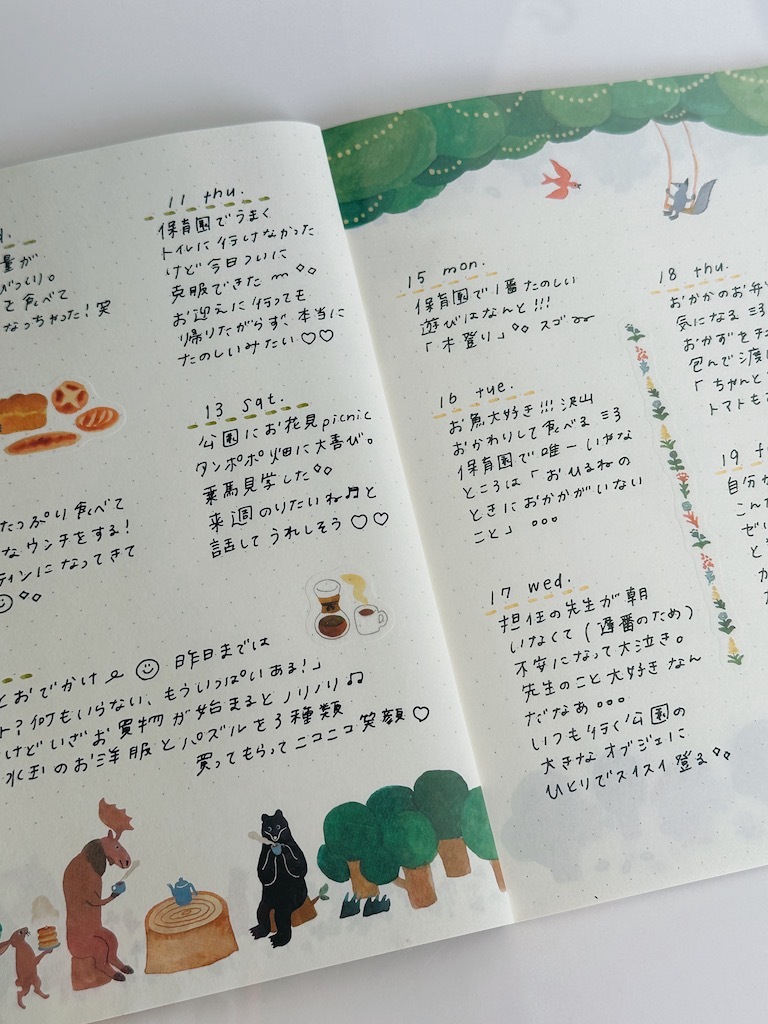 量が
びっくり。
で食べて
なっちゃった！笑
たっぷり食べて
なウンチをする！
ティンになってきて
11 thu.
保育園でうまく
トイレに行けなかった
けど今日ついに
克服できた
お迎えに行っても
帰りたがらず、本当に
たのしいみたい♡♡
13 sat.
公園にお花見picnic
タンポポ畑に大喜び。
乗馬見学した
来週のりたいね♬と
話してうれしそう♡♡
とおでかけ 昨日までは
ト？何もいらない、もういっぱいある！」
けどいざお買物が始まるとノリノリ♫
水玉のお洋服とパズルを3種類
買ってもらってニコニコ笑顔♡
15 mon.
保育園で1番たのしい
遊びはなんと!!!
「木登り」スゴ
16 tue.
お魚大好き!!!沢山
おかわりして食べる
保育園で唯一いやな
ところは「おひるねの
ときにおかかがいない
こと」。。。
17 wed.
担任の先生が朝
いなくて(遅番のため)
不安になって大泣き。
先生のこと大好きなん
だなあ。。。
いつも行く公園の
大きなオブジェに
ひとりでスイスイ登る
18 thu.
おかかのお弁
気になる
おかずをチ
包んで渡
「ちゃんと
トマトも
19
自分
こん
ぜい
と
か